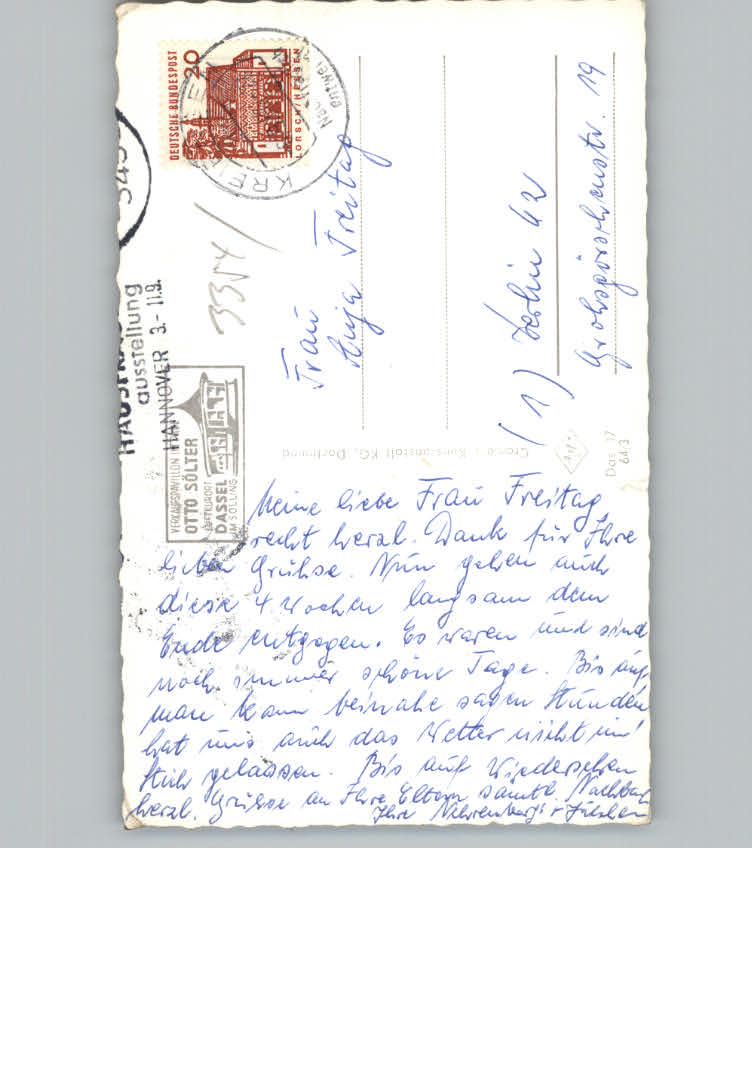 DEUTSCHE BUNDESPOST
20
LORSCH/HESSEN
KREI
Nac
entwer
HAUSFRA
ausstellung
HANNOVER 3.-11.9.
3354/
VERKAUFSPAVILLON
OTTO SÖLTER
LUFTKURORT
DASSEL
IM SOLLING
Frau
Anja Freitag
(1) Berlin 42
Großgörschenstr. 19
Cramers Kunstanstalt KG, Dortmund
Das 17
64/3
Meine liebe Frau Freitag,
recht herzl. Dank für Ihre
lieben Grühse. Nun gehen auch
diese 4 Wochen langsam dem
Ende entgegen. Es waren und sind
noch immer schöne Tage. Bis auf
man kann beinahe sagen Stunden
hat uns auch das Wetter nicht im
Stich gelassen. Bis auf Wiedersehen
herzl. Grühse an Ihre Eltern sämtl. Nachbarn
Ihre